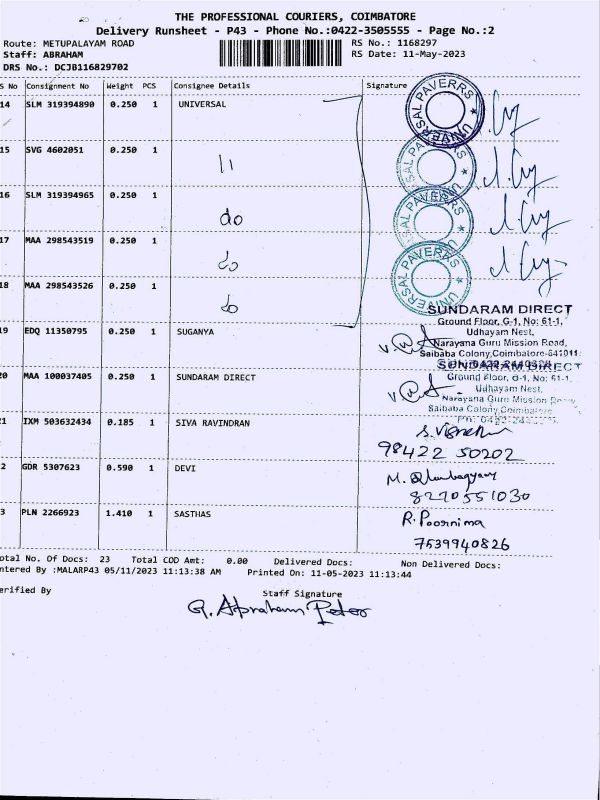 THE PROFESSIONAL COURIERS, COIMBATORE
Delivery Runsheet - P43 - Phone No.:0422-3505555 - Page No.:2
Route: METUPALAYAM ROAD RS No.: 1168297
Staff: ABRAHAM RS Date: 11-May-2023
DRS No.: DCJB116829702
S No Consignment No Weight PCS Consignee Details Signature
14 SLM 319394890 0.250 1 UNIVERSAL
UNIVERSAL PAVERRS
15 SVG 4602051 0.250 1 11
16 SLM 319394965 0.250 1 do
17 MAA 298543519 0.250 1 do
18 MAA 298543526 0.250 1 do
SUNDARAM DIRECT
Ground Floor, G-1, No: 61-1,
Udhayam Nest,
19 EDQ 11350795 0.250 1 SUGANYA
Narayana Guru Mission Road,
Saibaba Colony, Coimbatore-641011.
SUNDARAM DIRECT
Ground Floor, G-1, No: 61-1,
20 MAA 100037405 0.250 1 SUNDARAM DIRECT
Udhayam Nest,
Narayana Guru Mission Road,
Saibaba Colony, Coimbatore
21 IXM 503632434 0.185 1 SIVA RAVINDRAN
98422 50202
2 GDR 5307623 0.590 1 DEVI
8270551030
3 PLN 2266923 1.410 1 SASTHAS R. Poornima
7539940826
otal No. Of Docs: 23 Total COD Amt: 0.00 Delivered Docs: Non Delivered Docs:
ntered By :MALARP43 05/11/2023 11:13:38 AM Printed On: 11-05-2023 11:13:44
erified By Staff Signature
G. Abraham Peter